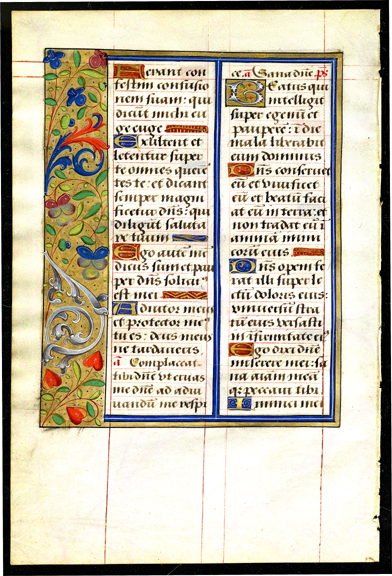 Ferant con
festim confusio
nem suam: qui
dicūt michi eu
ge euge
Exultent et
letentur super
te omnes quere
tes te: et dicant
semper magni
ficetur dn̄s: qui
diligūt saluta
re tuum
Ego autē mē
dicus sum et pau
per dn̄s solicit'
est mei
Adiutor meus
et protector me'
tu es: deus meus
ne tardaueris
a Complaceat
tibi dn̄e vt eruas
me dn̄e ad adiu
uandū me respi
ce. a Sana dn̄e. ps
Beatus qui
intelligit
super egenū et
pauperē: ī die
mala liberabit
eum dominus
Dn̄s conseruet
eū et viuificet
eū et beatū faci
at eū in terra: et
non tradat eū ī
animā inimi
corū eius
Dn̄s opem fe
rat illi super le
ctū doloris eius:
vniuersū stra
tū eius versasti
ī infirmitate ei'
Ego dixi dn̄e
miserere mei: sa
na aīam meā
q: peccaui tibi
Inimici mei